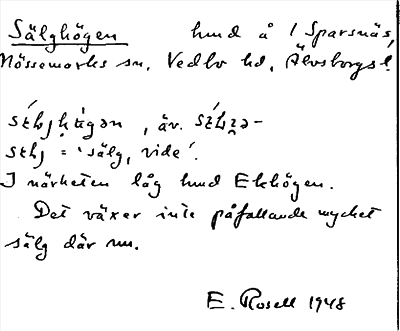 Sälghögen hmd å 1 Sparsnäs,
Nössemarks sn. Vedbo hd, Älvsborgs l.
, äv.
= 'sälg, vide'.
I närheten låg hmd Ekhögen.
Det växer inte påfallande mycket
sälg där nu.
E. Rosell 1948